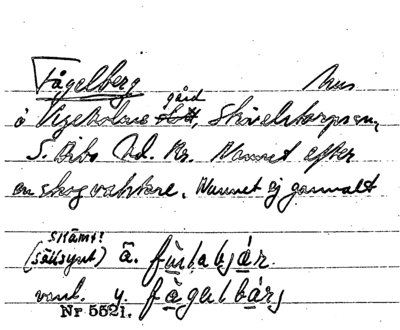 Fågelberg hus
å Vegeholms gård, Skivelstorps
S. Åsbo hd. Kr. Namnet efter
en skogvaktare. Namnet ej gammalt
skämt!
(sällsynt) ä.
vanl. y. fågalbärj
Nr 5521.